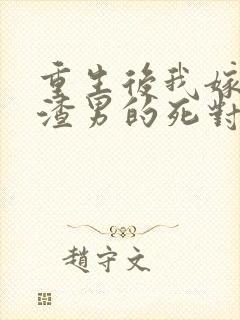 重生後我嫁
渣男的死對
趙守文